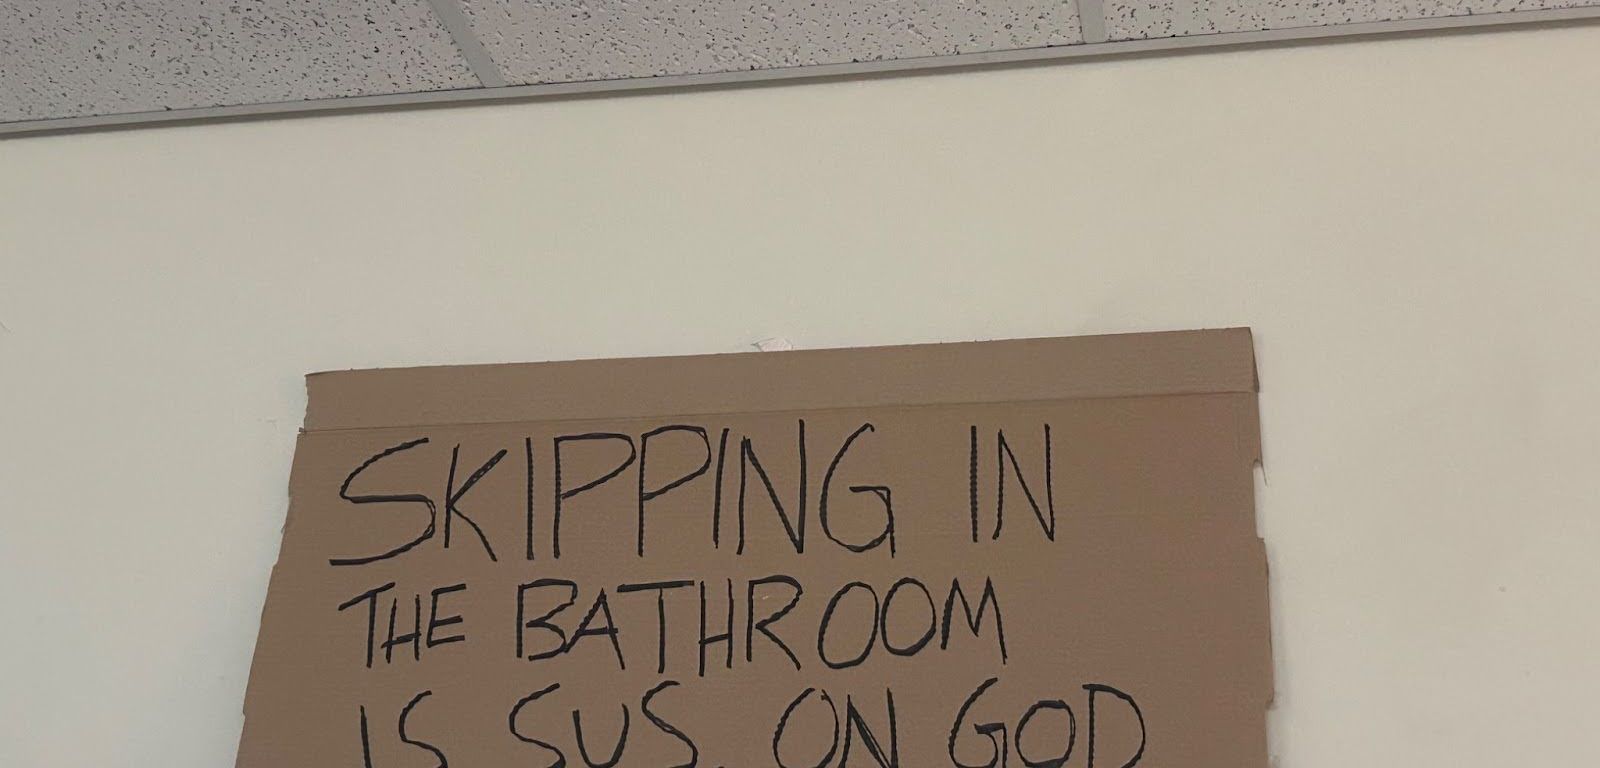 SKIPPING IN
THE BATHROOM
IS SUS. ON GOD